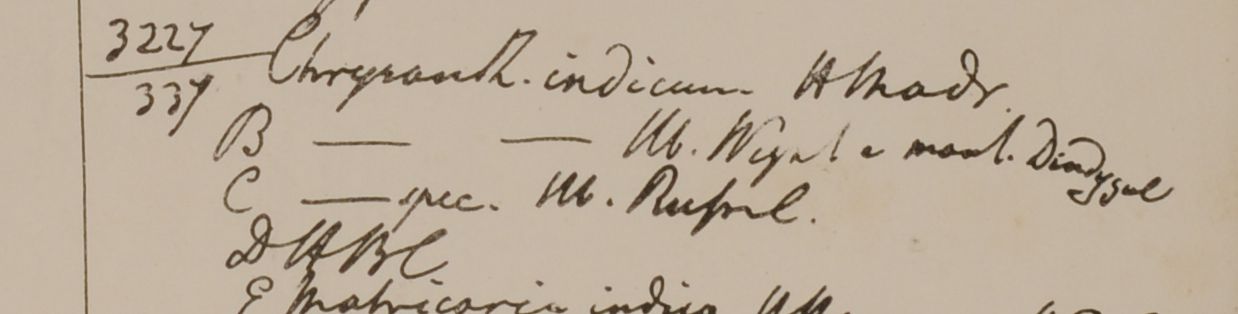 3227 Chrysanth. indicum H Madr.
337
B — — W. Wight e mont. Dindygul
C — spec. W. Russel.
D H B C
E Matricaria indica